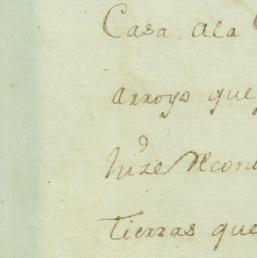 Casa ala
arroyo que
hize Recon
Tierras que